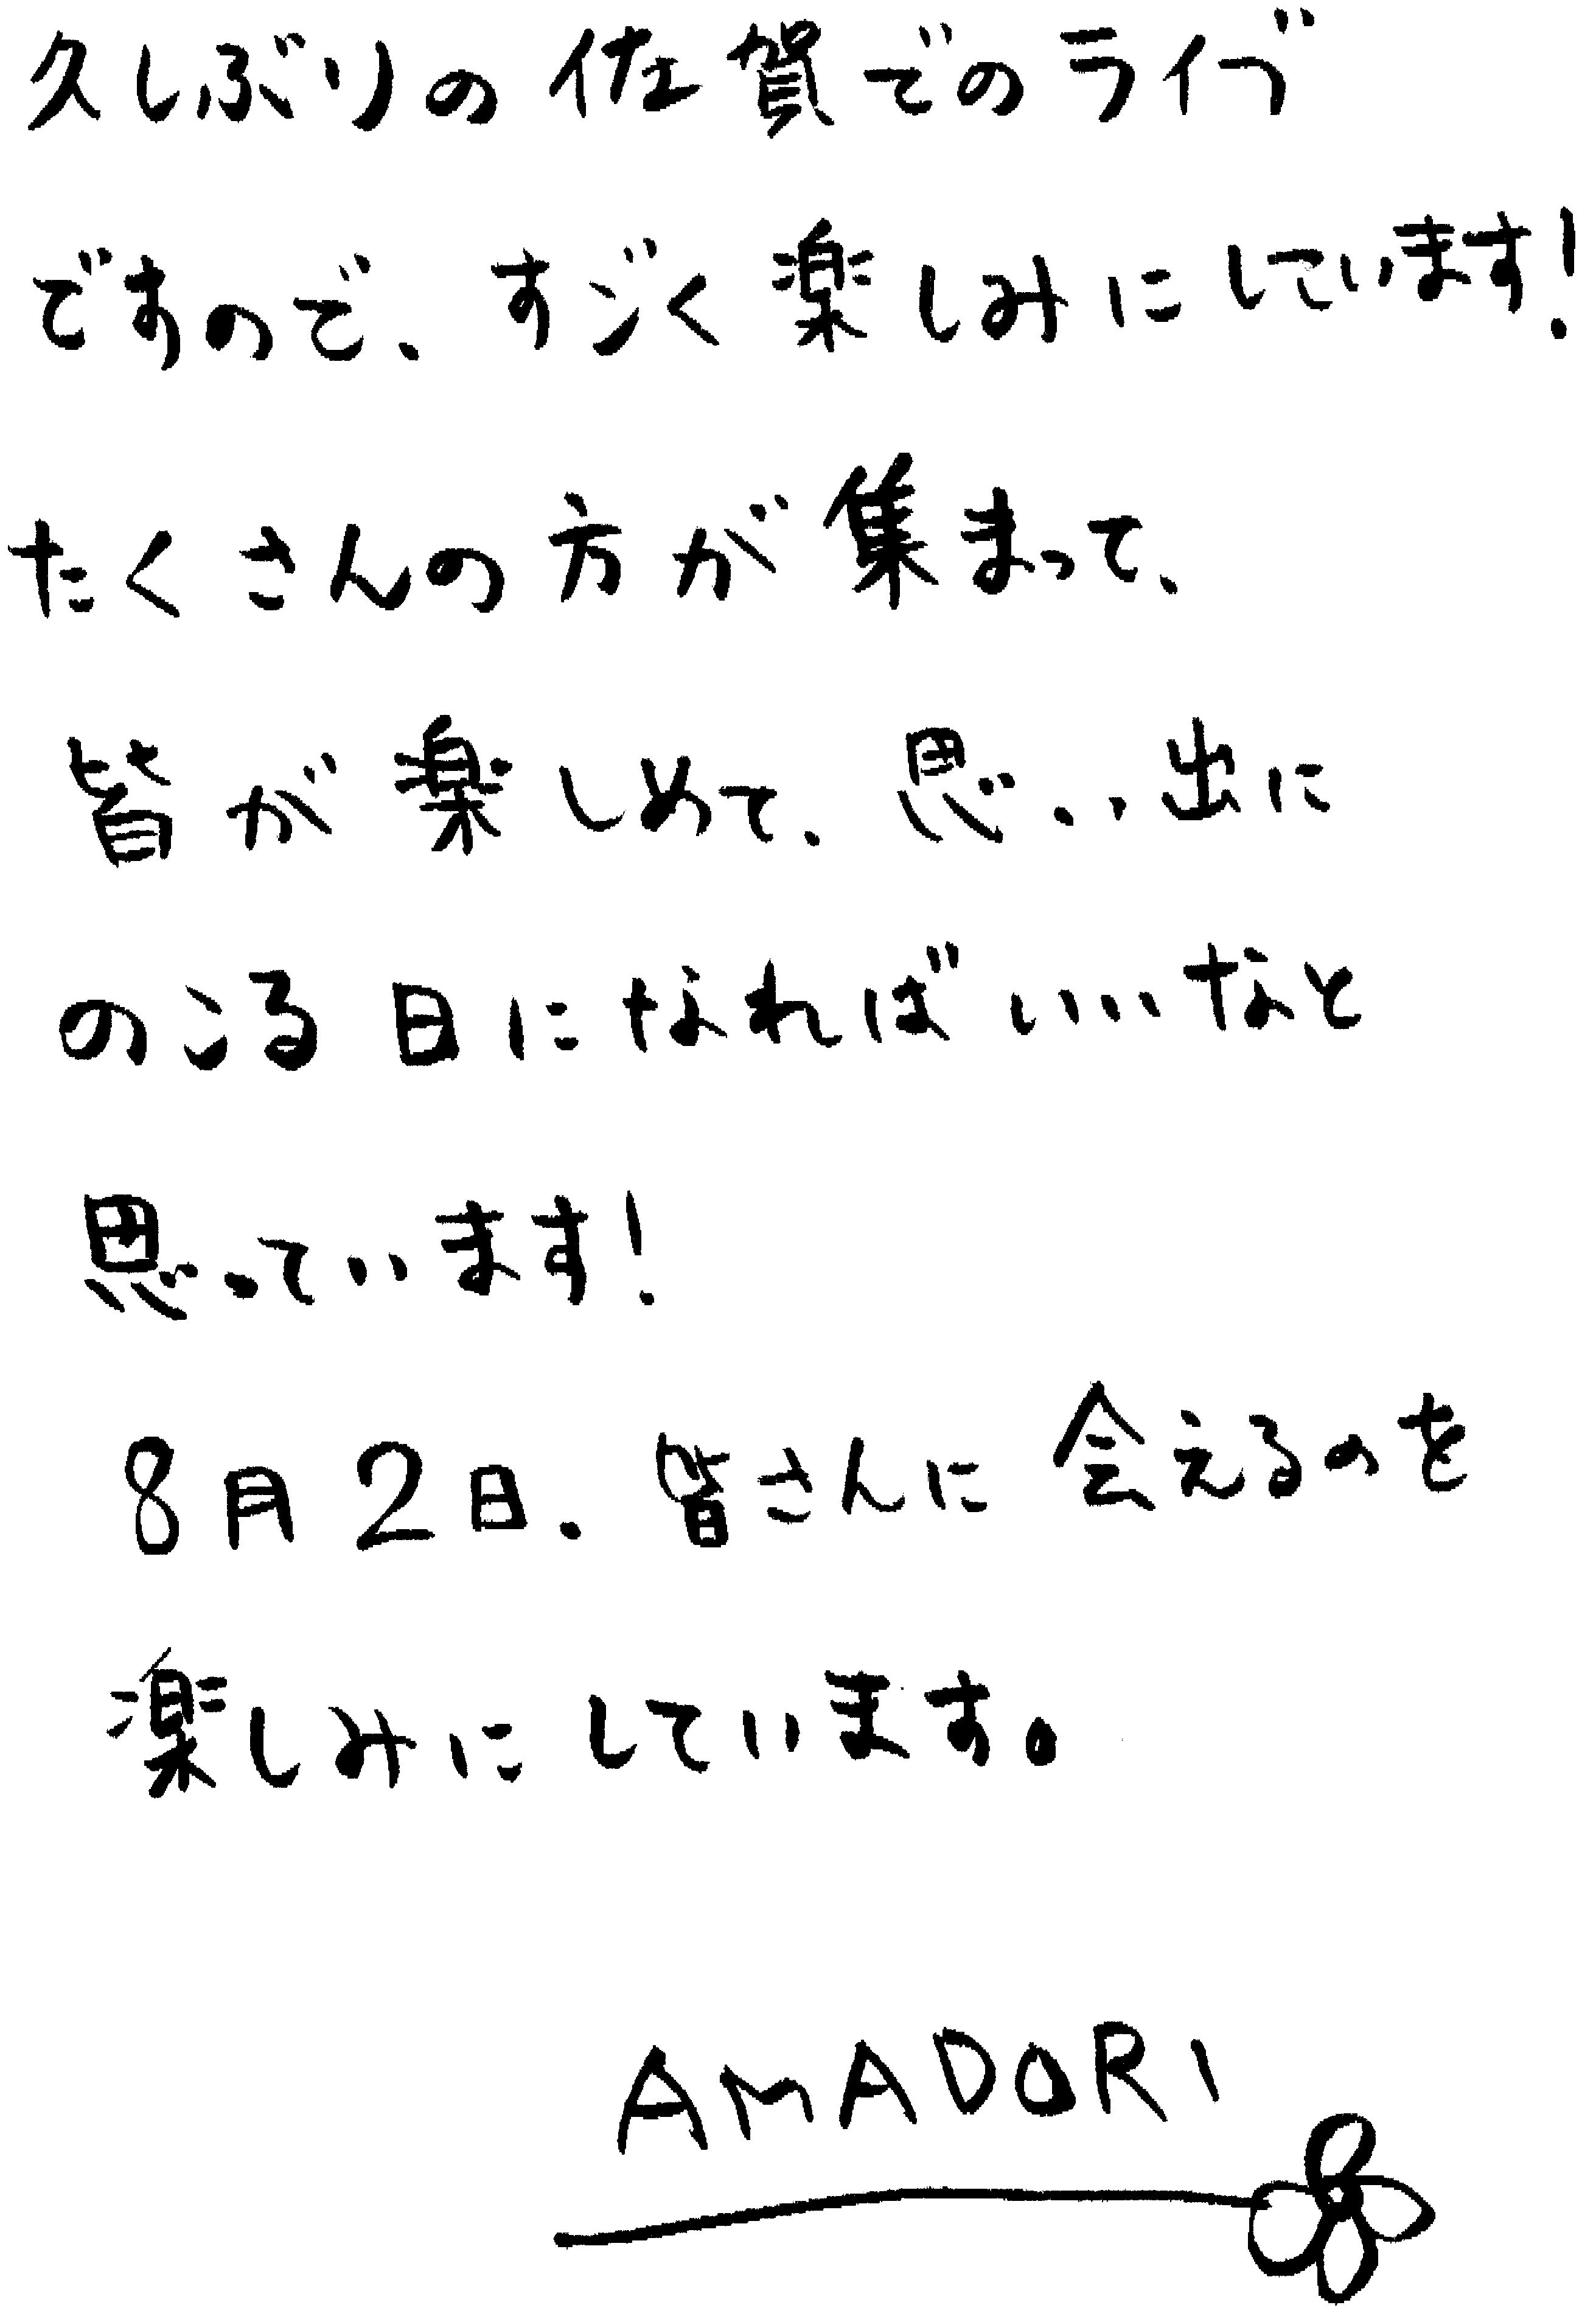 久しぶりの佐賀でのライブ
ですので、すごく楽しみにしています!
たくさんの方が集まって、
皆が楽しめて、思い出に
のこる日になればいいなと
思っています!
8月2日、皆さんに会えるのを
楽しみにしています。
AMADORI